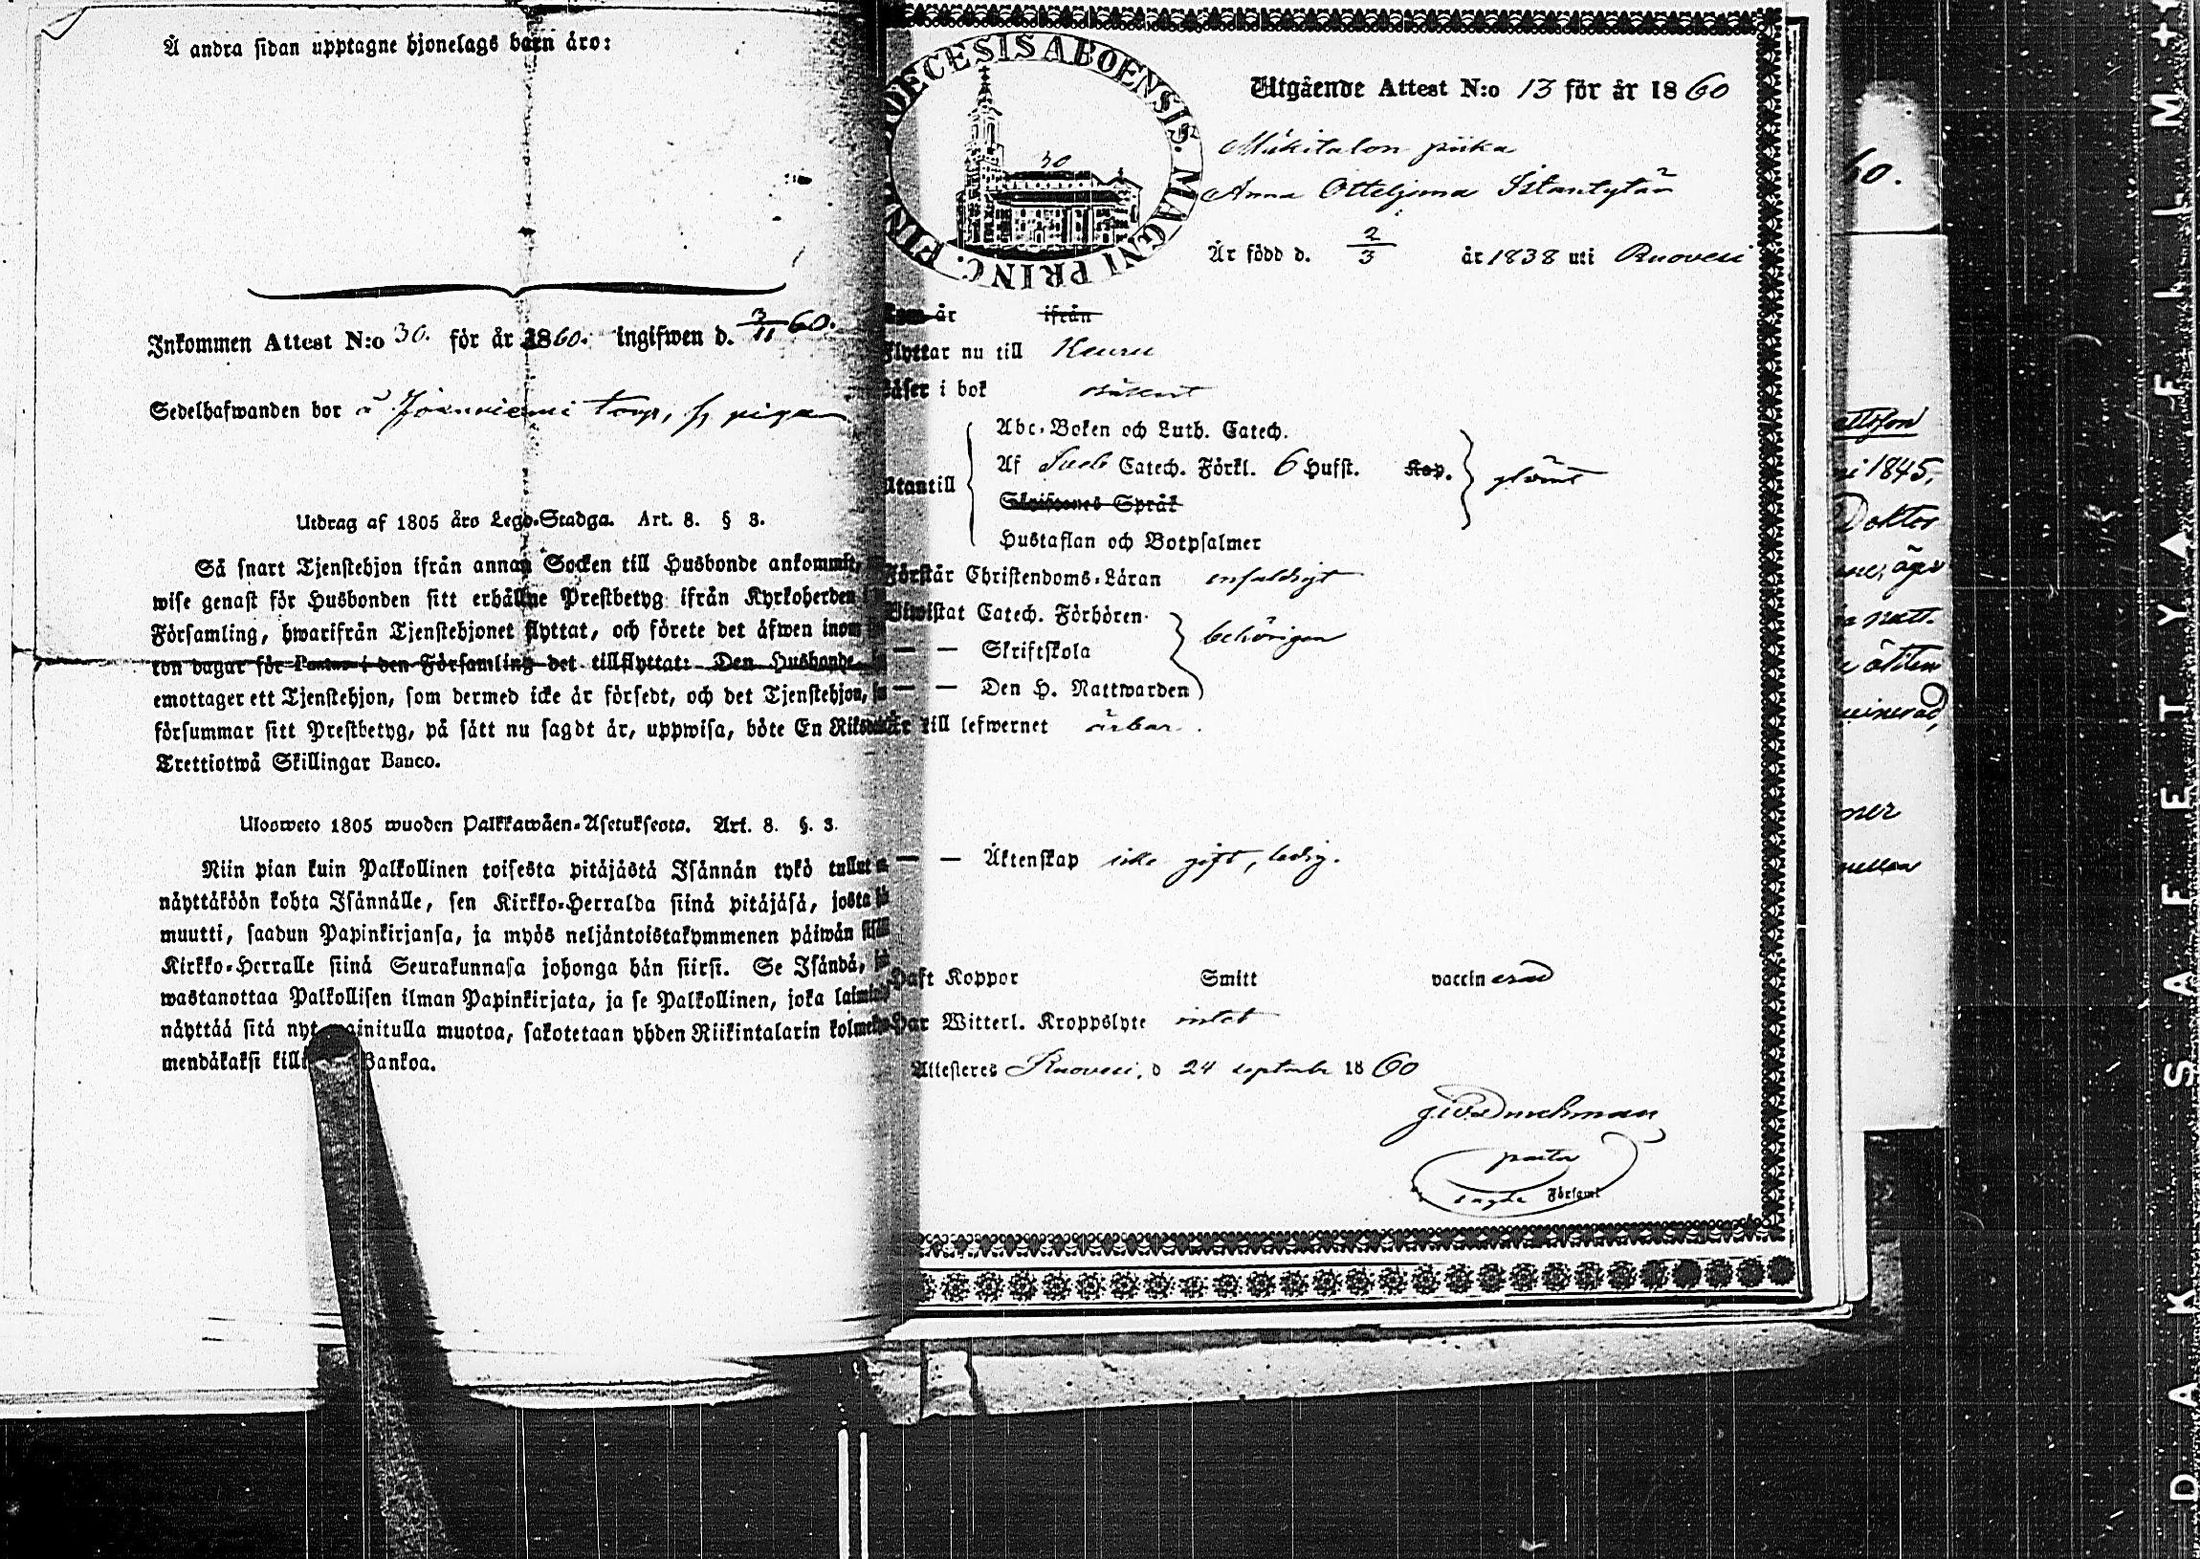 Å andra sidan upptagne hjonelags barn äro:
Inkommen Attest N:o 30. för år 1860. ingifwen d. 3/11 60.
Sedelhafwanden bor å torp,
Utdrag af 1805 års Lego-Stadga. Art. 8. § 3.
Så snart Tjenstehjon ifrån annan Socken till Husbonde ankommit,
wise genast för Husbonden sitt erhållne Prestbetyg ifrån Kyrkoherden i
Församling, hwarifrån Tjenstehjonet flyttat, och förete det äfwen inom
ton dagar för Pastor i den Församling det tillflyttat: Den Husbonde,
emottager ett Tjenstehjon, som dermed icke är försedt, och det Tjenstehjon,
försummar sitt Prestbetyg, på sätt nu sagdt är, uppwisa, böte En
Trettiotwå Skillingar Banco.
Ulosweto 1805 wuoden Palkkawäen-Asetuksesta. Art. 8. §. 3.
Niin pian kuin Palkollinen toisesta pitäjästä Isännän tykö tullut
näyttäköön kohta Isännälle, sen Kirkko-Herralda siinä pitäjäsä, josta
muutti, saadun Papinkirjansa, ja myös neljäntoistakymmenen päiwän
Kirkko-Herralle siinä Seurakunnasa johonga hän siirsi. Se Isändä,
wastanottaa Palkollisen ilman Papinkirjata, ja se Palkollinen, joka
näyttää sitä muotoa, sakotetaan yhden Riikintalarin
mendäkaksi Bankoa.
DECESIS ABOENSIS. MAGNI PRINC. FIN
30
Utgående Attest N:o 13 för år 1860
Mäkitalon piika
Anna
Är född d. 2/3 år 1838 uti Ruovesi
Kom år ifrån
Flyttar nu till Keuru
Läser i bok
Utantill
Abc-Boken och Luth. Catech.
Af Catech. Förkl. 6 Hufst. Kap.
Skriftenes Språk
Hustaflan och Botpsalmer
Förstår Christendoms-Läran enfaldigt
Biwistat Catech. Förhören
— — Skriftskola behörigen
— — Den H. Nattwarden
Är till lefwernet ärbar.
— — Äktenskap icke gift, ledig.
Haft Koppor Smitt vaccinerad
Har Witterl. Kroppslyte intet
Attesteres Ruovesi, d 24 septemb 1860
pastor
Församl
60.
ni 1845,
Doktor
SAFETY▲FILM